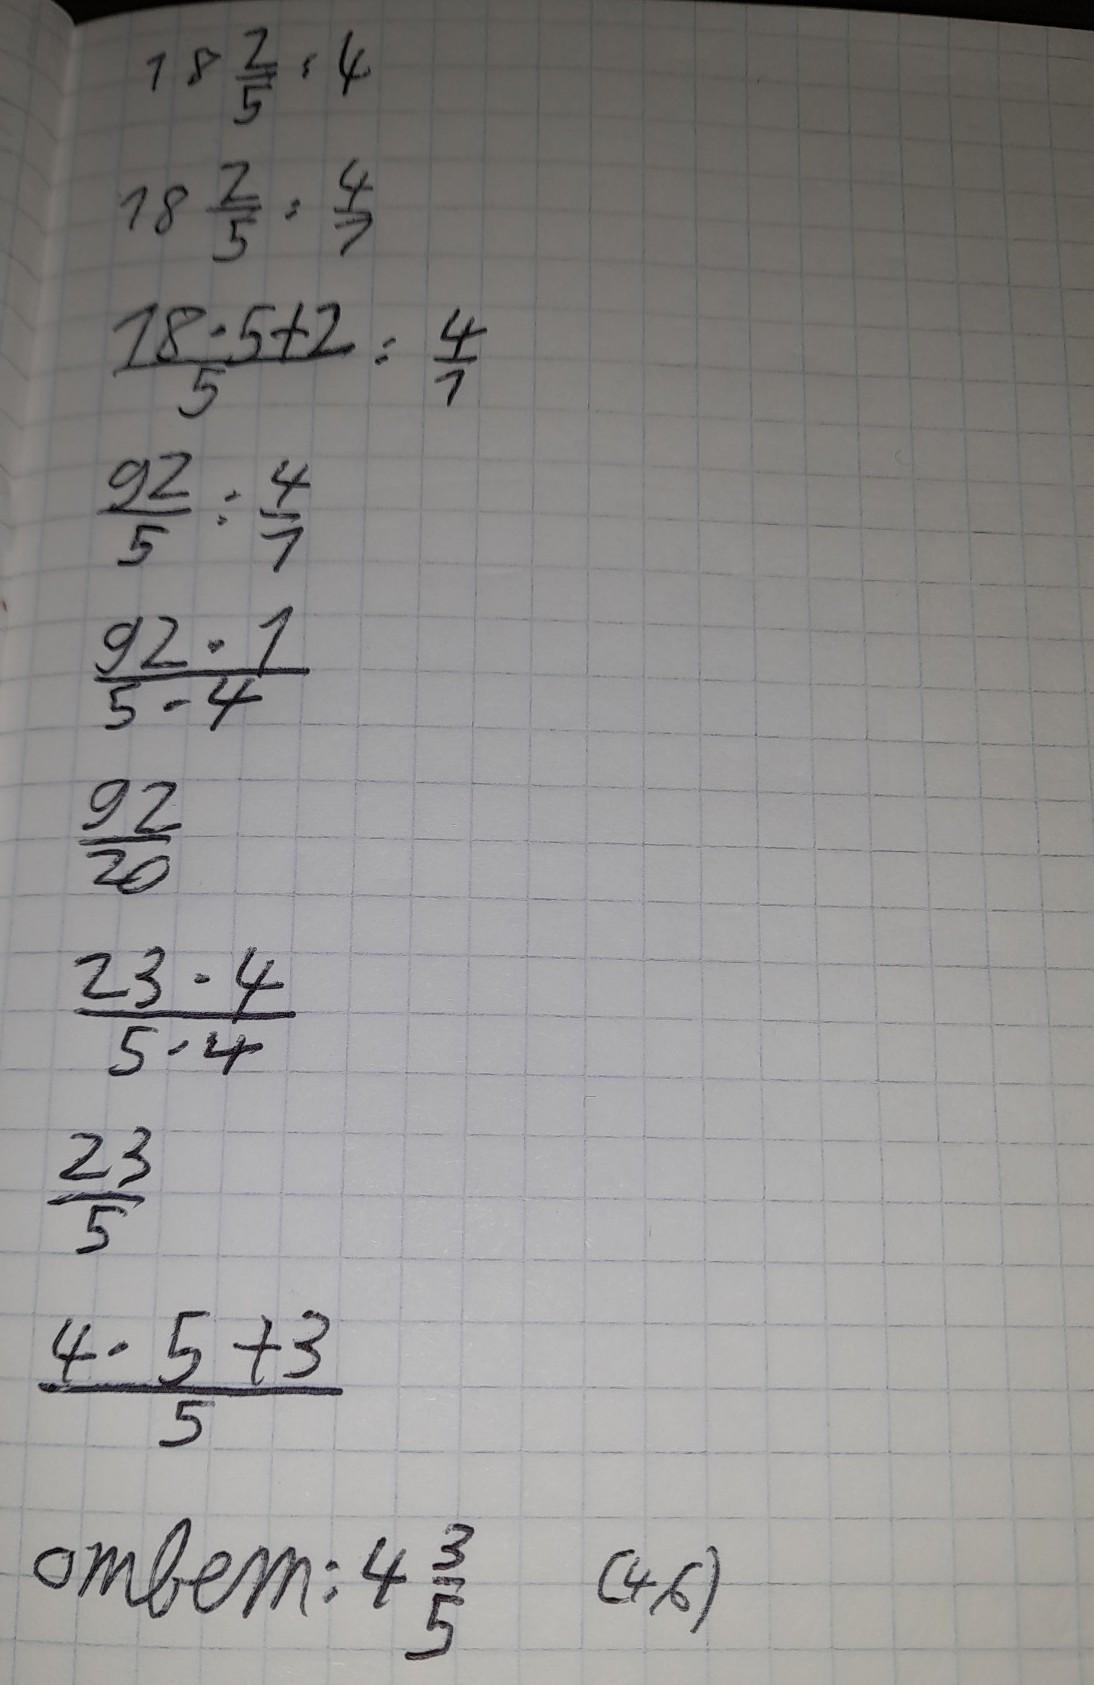 18 2/5 : 4
18 2/5 : 4/1
(18·5+2)/5 : 4/1
92/5 : 4/1
(92·1)/(5·4)
92/20
(23·4)/(5·4)
23/5
(4·5+3)/5
ответ: 4 3/5 (4,6)